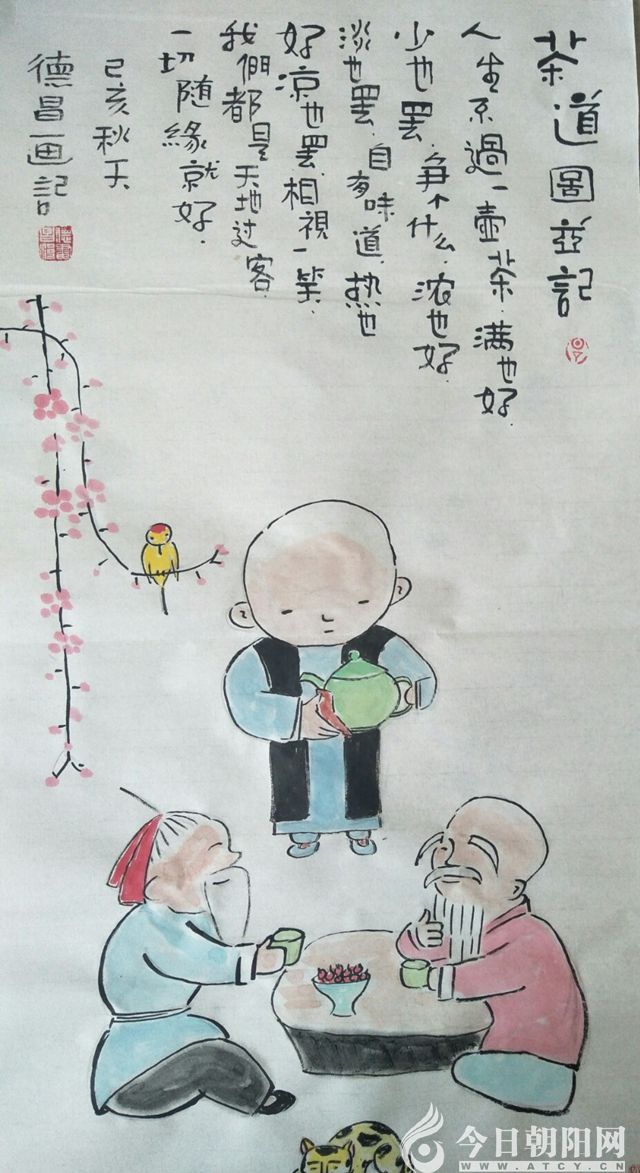 茶道圖並記
人生不過一壺茶.满也好.
少也罢.争个什么.浓也好.
淡也罢.自有味道.热也
好凉也罢.相視一笑.
我們都是天地过客.
一切随緣就好.
己亥秋天
德昌画記
今日朝阳网
WWW.ATCY.CN